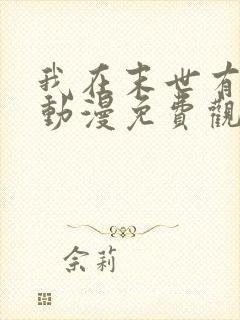 我在末世有
動漫免費觀
佘莉